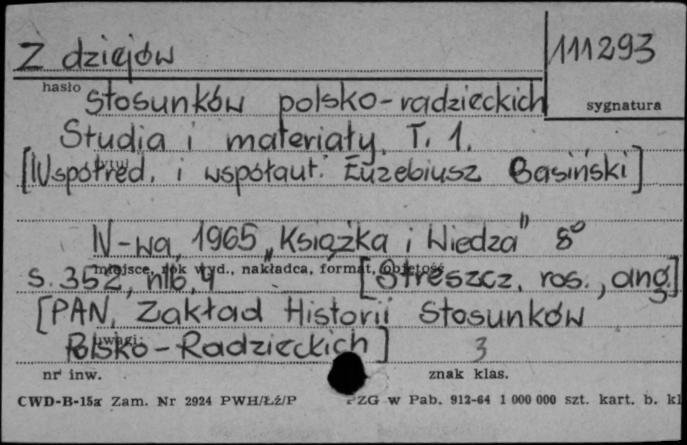 Z dziejów
111293
hasło
sygnatura
stosunków polsko-radzieckich
Studia i materiały. T. 1.
[Współred. i współaut. Euzebiusz Basiński]
tytuł
W-wa 1965 „Książka i Wiedza" 8°
miejsce, rok wyd., nakładca, format, objętość
s. 352, nlb. 4 [Streszcz. ros., ang.]
[PAN. Zakład Historii Stosunków
Polsko-Radzieckich] 3
uwagi
nr inw.
znak klas.
CWD-B-15a Zam. Nr 2924 PWH/Łź/P
PZG w Pab. 912-64 1 000 000 szt. kart. b. kl